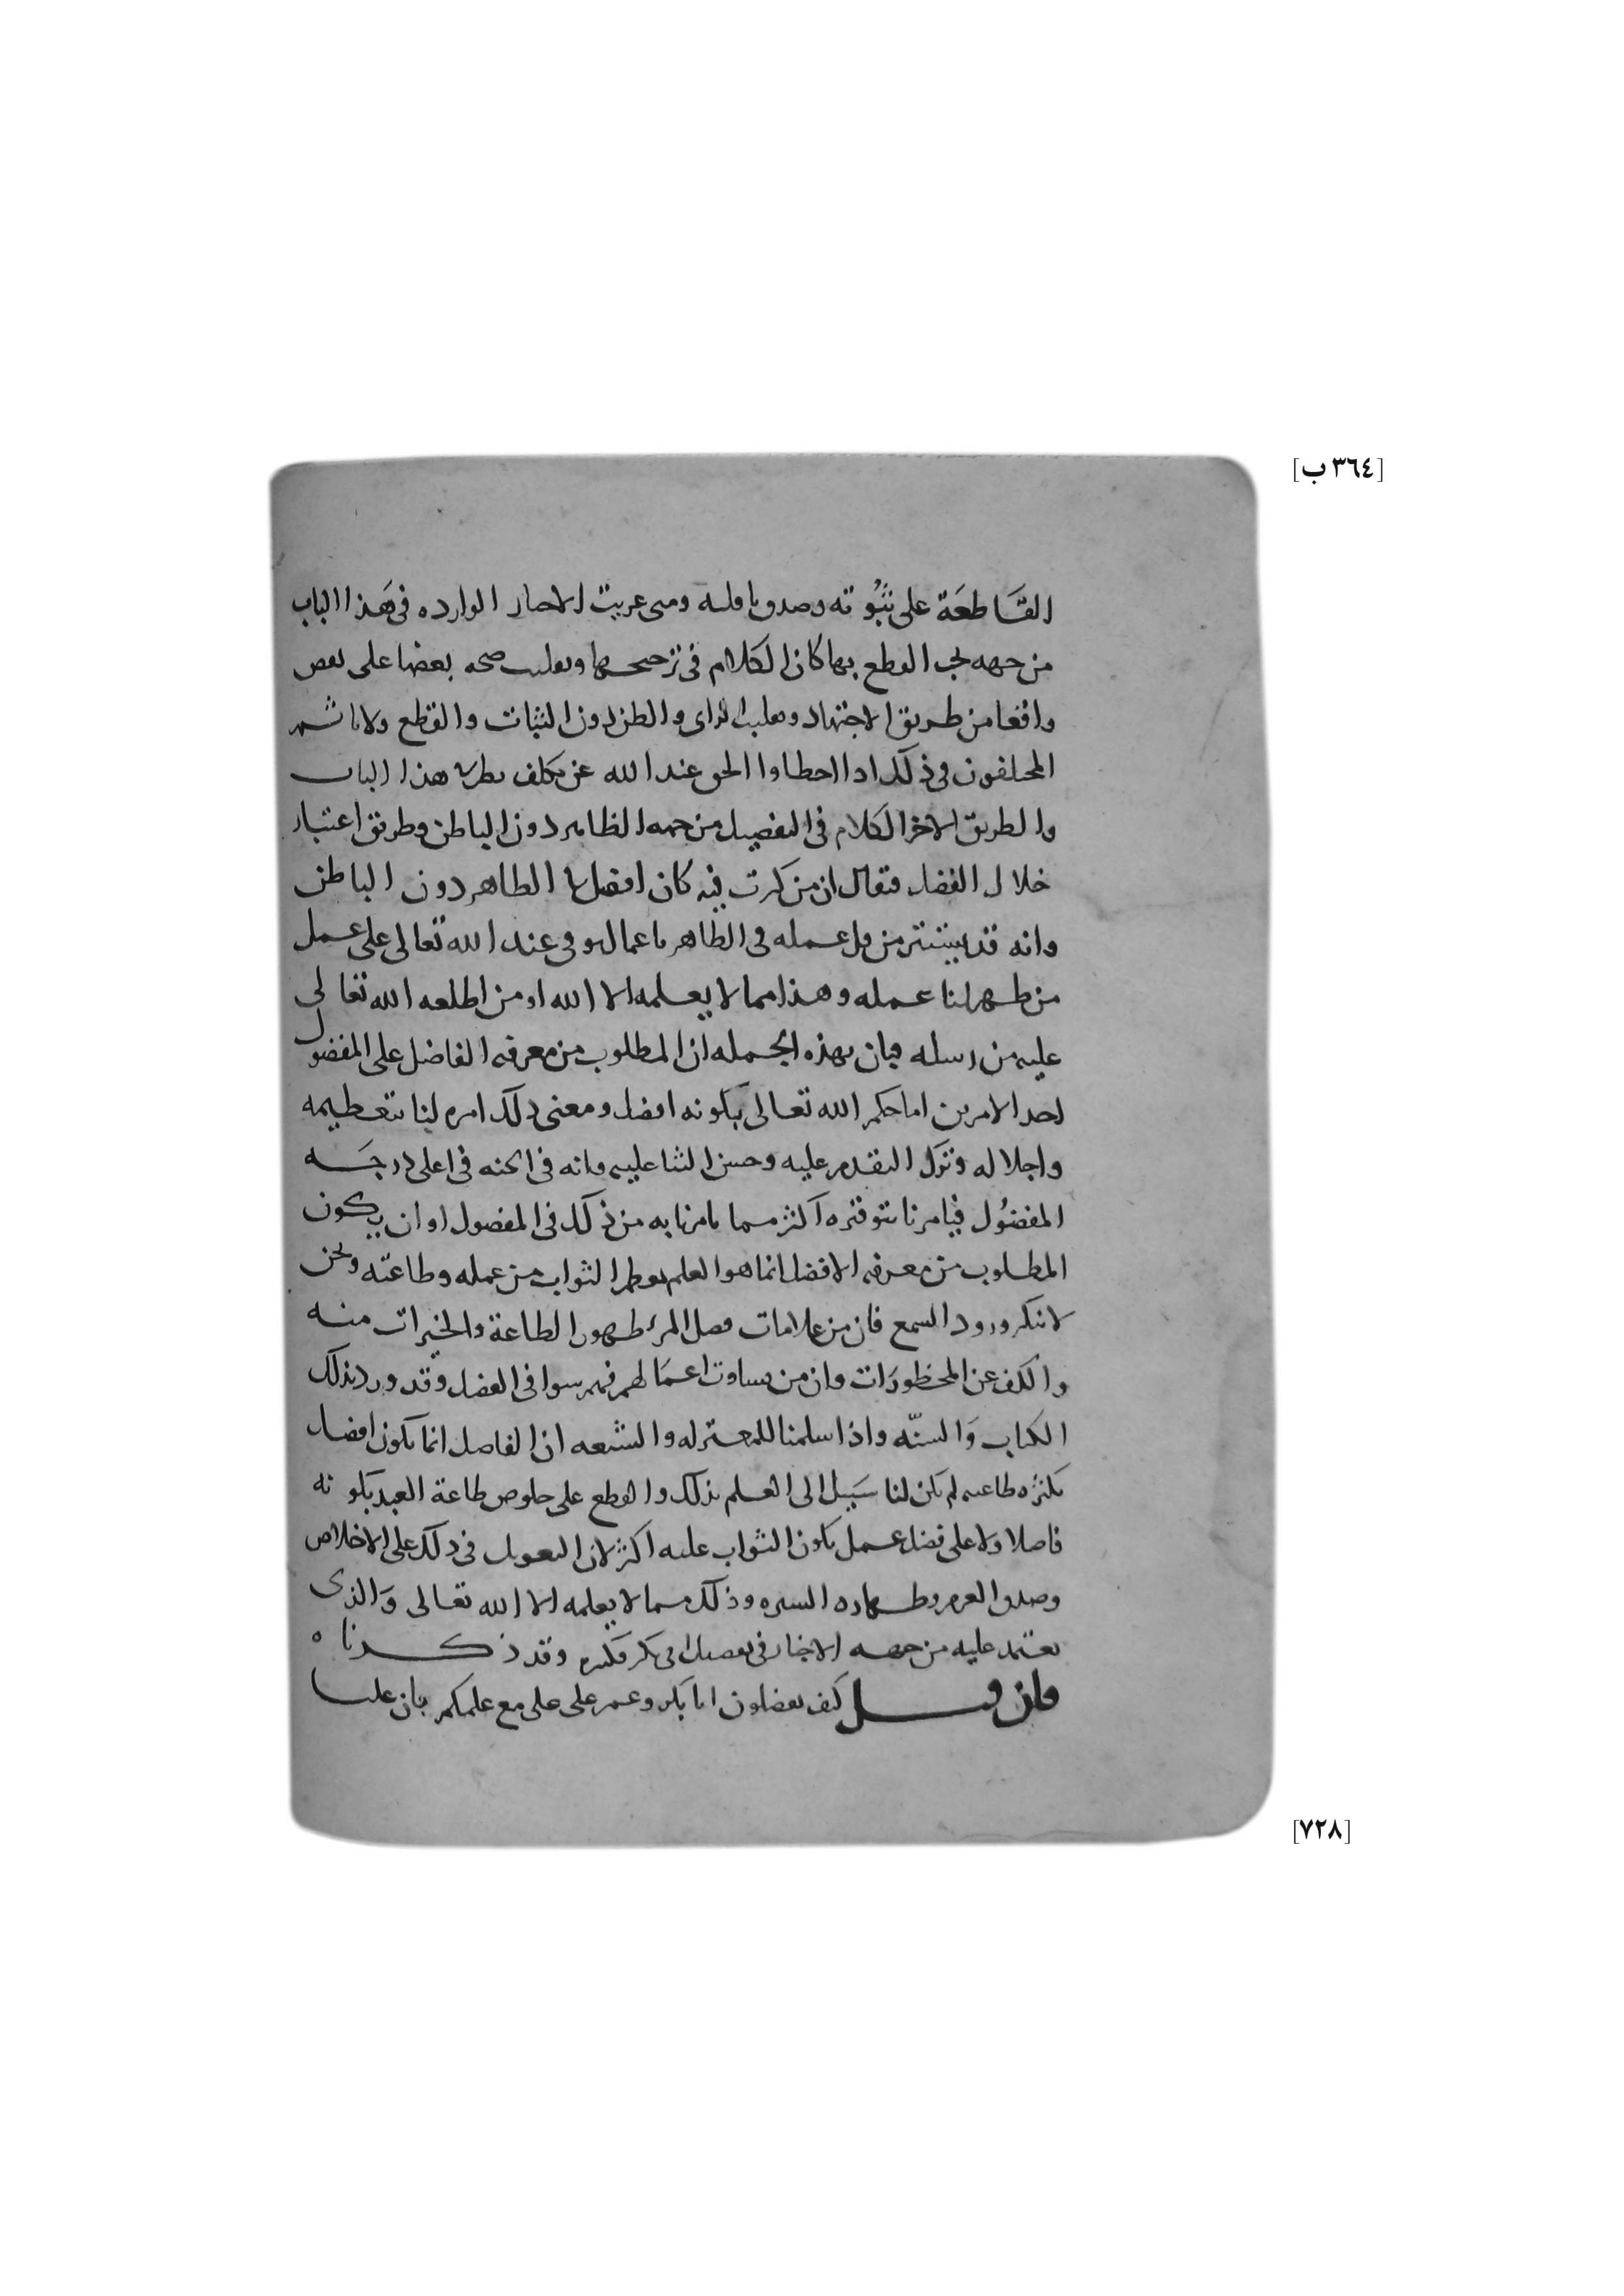 [٣٦٤ ب]
القَاطعَة على ثبُوته وصدق ناقليه ومتى عريت الاخبار الوارده فى هَذا الباب
من جهه يجب القطع بها كان الكلام فى ترجيحها وتغليب صحه بعضها على بعض
واقعا من طريق الاجتهاد وتغليب الراى والظن دون الثبات والقطع ولا ياثم
المختلفون فى ذلك اذا اخطاوا الحق عند الله عن تكلف هذا الباب
والطريق الاخر الكلام فى التفضيل من جهه الظاهر دون الباطن وطريق اعتبار
خلال الفضل فيقال ان من كثرت فيه كان افضل فى الظاهر دون الباطن
وانه قد يستتر من قل عمله فى الظاهر باعمال توفى عند الله تعالى على عمل
من ظهر لنا عمله وهذا مما لا يعلمه الا الله او من اطلعه الله تعالى
عليه من رسله فبان بهذه الجمله ان المطلوب من معرفه الفاضل على المفضول
احد الامرين اما حكم الله تعالى بكونه افضل ومعنى ذلك امره لنا بتعظيمه
واجلاله وترك التقدم عليه وحسن الثنا عليه وانه فى الجنه فى اعلى درجَه
المفضُول فيامرنا بتوقيره اكثر مما يامرنا به من ذلك فى المفضول او ان يكون
المطلوب من معرفه الافضل انما هو العلم بعظم الثواب من عمله وطاعته ونحن
لا ننكر ورود السمع فان من علامات فضل المرء ظهور الطاعة والخيرات منه
والكف عن المحظورَات وان من تساوت اعمَالهم فهم سوا فى الفضل وقد ورد بذلك
الكتاب وَالسنّه واذا سلمنا للمعتزله والشيعه ان الفاضل انما يكون افضل
بكثره طاعته لم يكن لنا سَبيل الى العلم بذلك والقطع على خلوص طاعة العبد بكونه
فاضلا ولا على فضل عمل يكون الثواب عليه اكثر لان التعويل فى ذلك على الاخلاص
وصدق العزم وطهاره السيره وذلك مما لا يعلمه الا الله تعالى وَالذى
يعتمد عليه من جهه الاخبار فى تفضيل ابى بكر فكثيره وقد ذكرناه
فان قيل كيف تفضلون ابا بكر وعمر على على مع علمكم بان عليا
[٧٢٨]